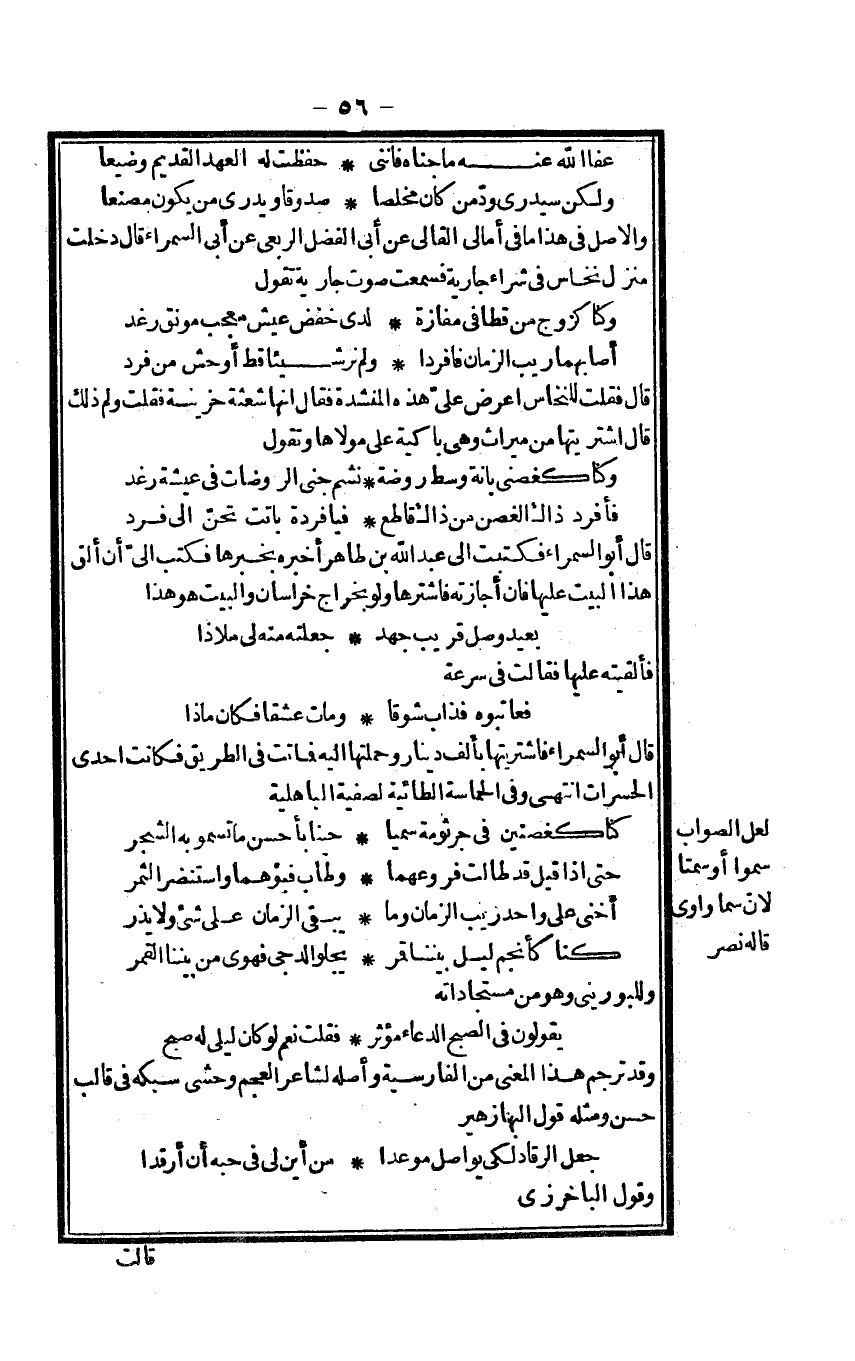 - ٥٦ -
عفا الله عنه ما جناه فانني * حفظت له العهد القديم وضيعا
ولكن سيدرى ودّ من كان مخلصا * صدوقا ويدرى من يكون مصنعا
والاصل فى هذا ما فى أمالى القالى عن أبى الفضل الربعى عن أبى السمراء قال دخلت
منزل نخاس فى شراء جارية فسمعت صوت جارية تقول
وكنا كزوج من قطا فى مفازة * لدى خفض عيش معجب مونق رغد
أصابهما ريب الزمان فافردا * ولم نر شيئا قط أوحش من فرد
قال فقلت للنخاس اعرض علىّ هذه المنشدة فقال انها شعثة حزينة فقلت ولم ذلك
قال اشتريتها من ميراث وهى باكية على مولاها وتقول
وكنا كغصنى بانة وسط روضة * نشم جنى الروضات فى عيشة رغد
فأفرد ذاك الغصن من ذاك قاطع * فيا فردة باتت تحنّ الى فرد
قال أبو السمراء فكتبت الى عبد الله بن طاهر أخبره بخبرها فكتب الىّ أن ألق
هذا البيت عليها فان أجازته فاشترها ولو بخراج خراسان والبيت هو هذا
بعيد وصل قريب جهد * جعلته منه لى ملاذا
فألقيته عليها فقالت فى سرعة
فعاتبوه فذاب شوقا * ومات عشقا فكان ماذا
قال أبو السمراء فاشتريتها بألف دينار وحملتها اليه فماتت فى الطريق فكانت احدى
الحسرات انتهى وفى الحماسة الطائية لصفية الباهلية
كنا كغصنين فى جرثومة سميا * حينا بأحسن ما تسمو به الشجر
حتى اذا قيل قد طالت فروعهما * وطاب فيؤهما واستنضر الثمر
أخنى على واحد ريب الزمان وما * يبقى الزمان على شئ ولا يذر
كنا كأنجم ليل بيننا قمر * يجلو الدجى فهوى من بيننا القمر
وللبورينى وهو من مستجاداته
يقولون فى الصبح الدعاء مؤثر * فقلت نعم لو كان ليلى له صبح
وقد ترجم هذا المعنى من الفارسية وأصله لشاعر العجم وحشى سبكه فى قالب
حسن ومثله قول البهازهير
جعل الرقاد لكى يواصل موعدا * من أين لى فى حبه أن أرقدا
وقول الباخرزى
قالت
لعل الصواب
سموا أو سمتا
لانّ سما واوى
قاله نصر